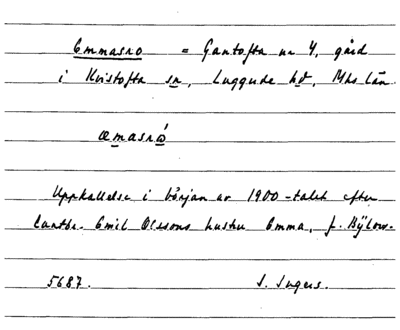 Emmasro = Gantofta nr 4, gård
i Kvistofta sn, Luggude hd, Mhs län
æmasrὼ
Uppkallelse i början av 1900-talet efter
lantbr. Emil Olssons hustru Emma, f. Bülow.
5687. I. Ingers.